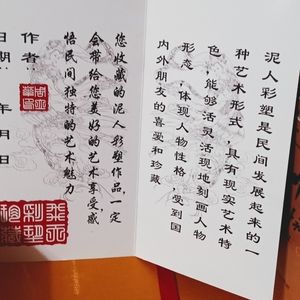 泥人彩塑是民间发展起来的一
种艺术形式，具有现实艺术特
色，能够活灵活现地刻画人物
形态，体现人物性格，受到国
内外朋友的喜爱和珍藏
您收藏的泥人彩塑作品一定
会带给您美好的艺术享受，感
悟民间独特的艺术魅力
作者
日期 年 月 日